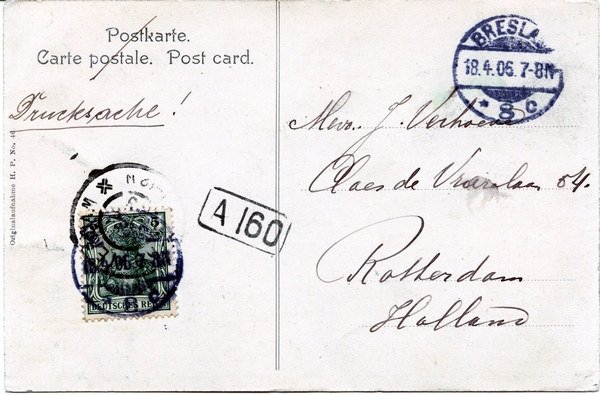 Postkarte.
Carte postale. Post card.
Drucksache!
Originalaufnahme H. P. No. 46
BRESLA
18.4.06.7-8N
* 8 c
A 160
DEUTSCHES REICH
Mevr. J. Verhoeve
Claes de Vrieselaan 54.
Rotterdam
Holland